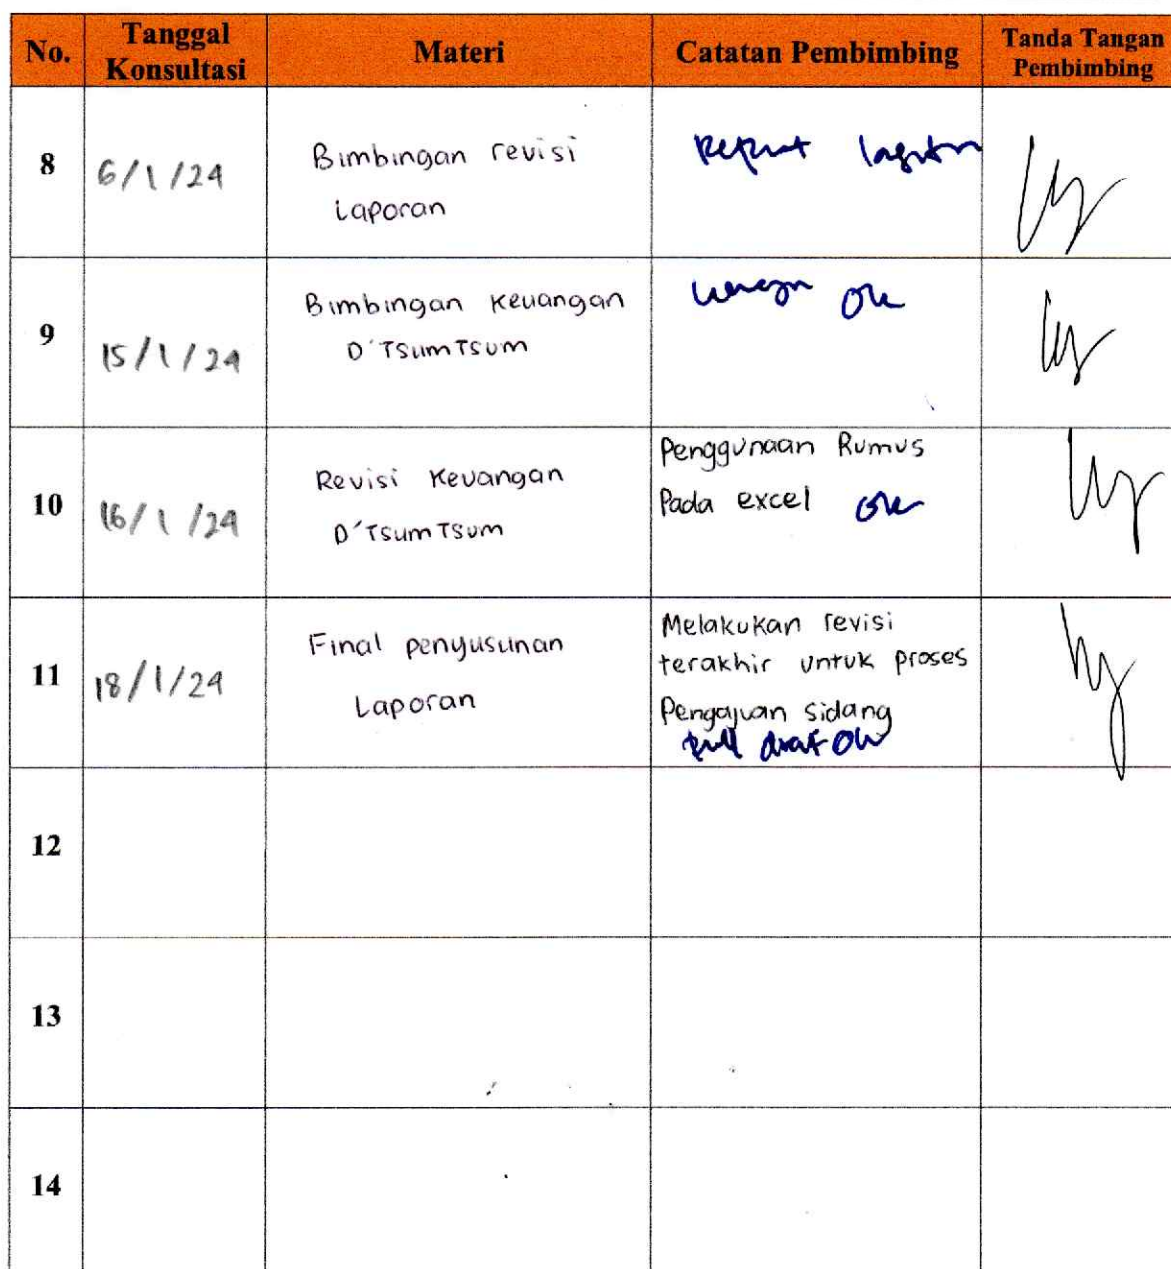 No. Tanggal Konsultasi Materi Catatan Pembimbing Tanda Tangan Pembimbing
8 6/1/24 Bimbingan revisi
Laporan
9 15/1/24 Bimbingan Keuangan
D'TsumTsum
ok
10 16/1/24 Revisi Keuangan
D'TsumTsum
Penggunaan Rumus
Pada excel ok
11 18/1/24 Final penyusunan
Laporan
Melakukan revisi
terakhir untuk proses
Pengajuan sidang
full draf ok
12
13
14